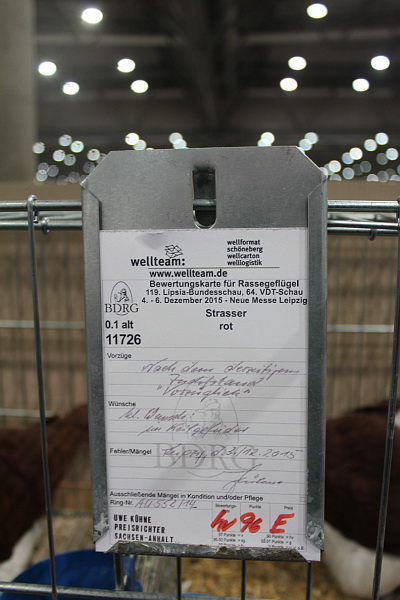 wellteam:
wellformat
schöneberg
wellcarton
welllogistik
www.wellteam.de
Bewertungskarte für Rassegeflügel
119. Lipsia-Bundesschau, 64. VDT-Schau
4. - 6. Dezember 2015 - Neue Messe Leipzig
BDRG
Strasser
0.1 alt
rot
11726
Vorzüge
Nach dem derzeitigen
Zuchtstand
"Vorzüglich"
Wünsche
kl. Wunsch:
im Keilgefieder
Fehler/Mängel
Leipzig, d. 3/12.2015
BDRG
Ausschließende Mängel in Condition und/oder Pflege
Ring-Nr.
Bewertungs-
Punkte
Preis
hv 96 E
UWE KÜHNE
PREISRICHTER
SACHSEN-ANHALT